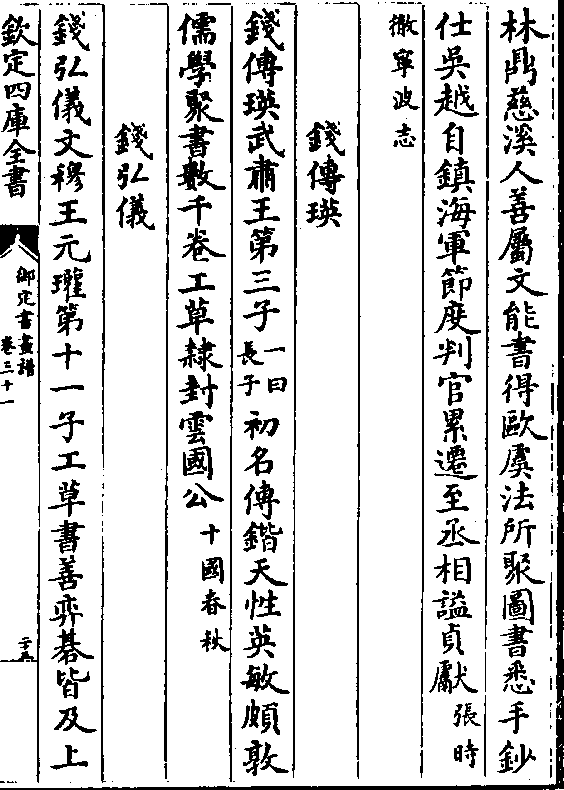 林鼎慈溪人善屬文能書得歐虞法所聚圖書悉手鈔
仕吳越自鎮海軍節度判官累遷至丞相謚貞獻張時
徹寧波志
錢傳瑛
錢傳瑛武肅王第三子一曰長子初名傳鍇天性英敏頗敦
儒學聚書數千卷工草隸封雲國公十國春秋
錢弘儀
錢弘儀文穆王元瓘第十一子工草書善弈棊皆及上
欽定四庫全書
御定書畫譜
卷三十一
二十五